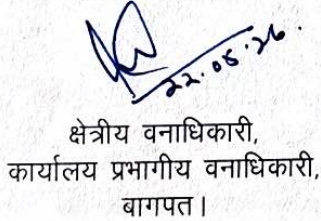 22.05.26.
क्षेत्रीय वनाधिकारी,
कार्यालय प्रभागीय वनाधिकारी,
बागपत।